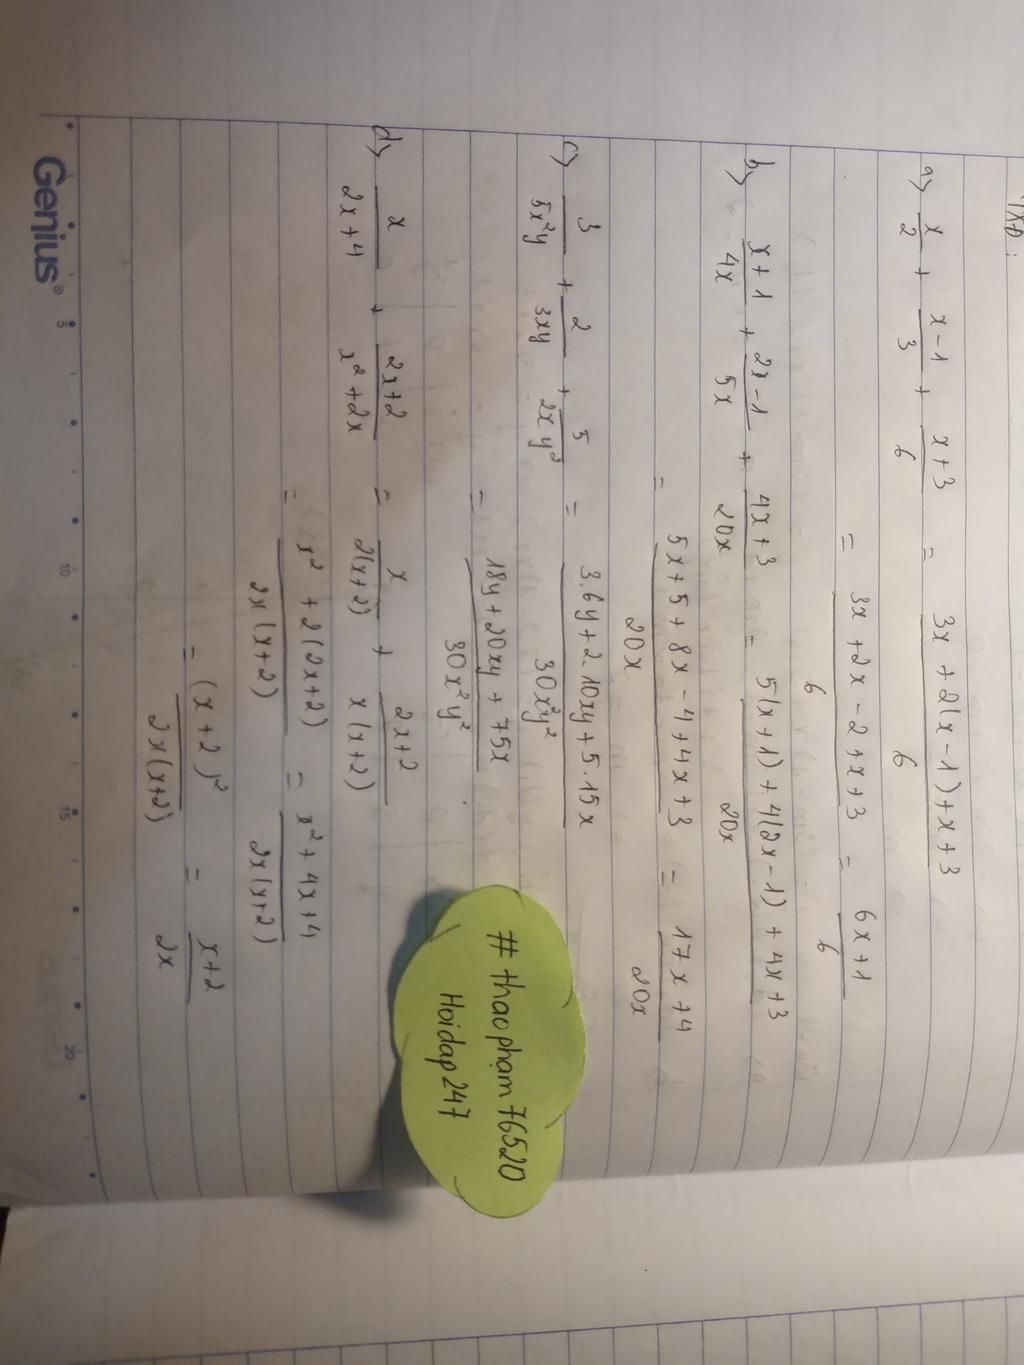 a) x/2 + x-1/3 + x+3/6 = 3x + 2(x-1) + x+3/6
= 3x + 2x - 2 + x + 3/6 = 6x+1/6
b) x+1/4x + 2x-1/5x + 4x+3/20x = 5(x+1) + 4(2x-1) + 4x+3/20x
= 5x + 5 + 8x - 4 + 4x + 3/20x = 17x + 4/20x
c) 3/5x²y + 2/3xy + 5/2xy² = 3.6y + 2.10xy + 5.15x/30x²y²
= 18y + 20xy + 75x/30x²y²
d) x/2x+4 + 2x+2/x²+2x = x/2(x+2) + 2x+2/x(x+2)
= x² + 2(2x+2)/2x(x+2) = x² + 4x + 4/2x(x+2)
= (x+2)²/2x(x+2) = x+2/2x
# thaophạm76520
Hoidap247
Genius®
5 10 15 20